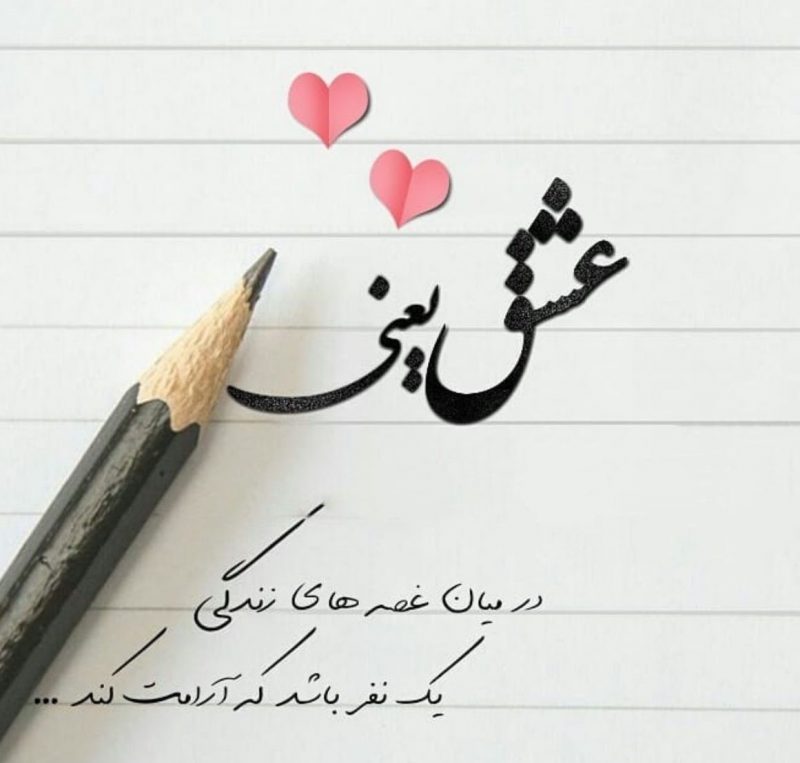 عشق یعنی
در میان غصه های زندگی
یک نفر باشد که آرامت کند ...